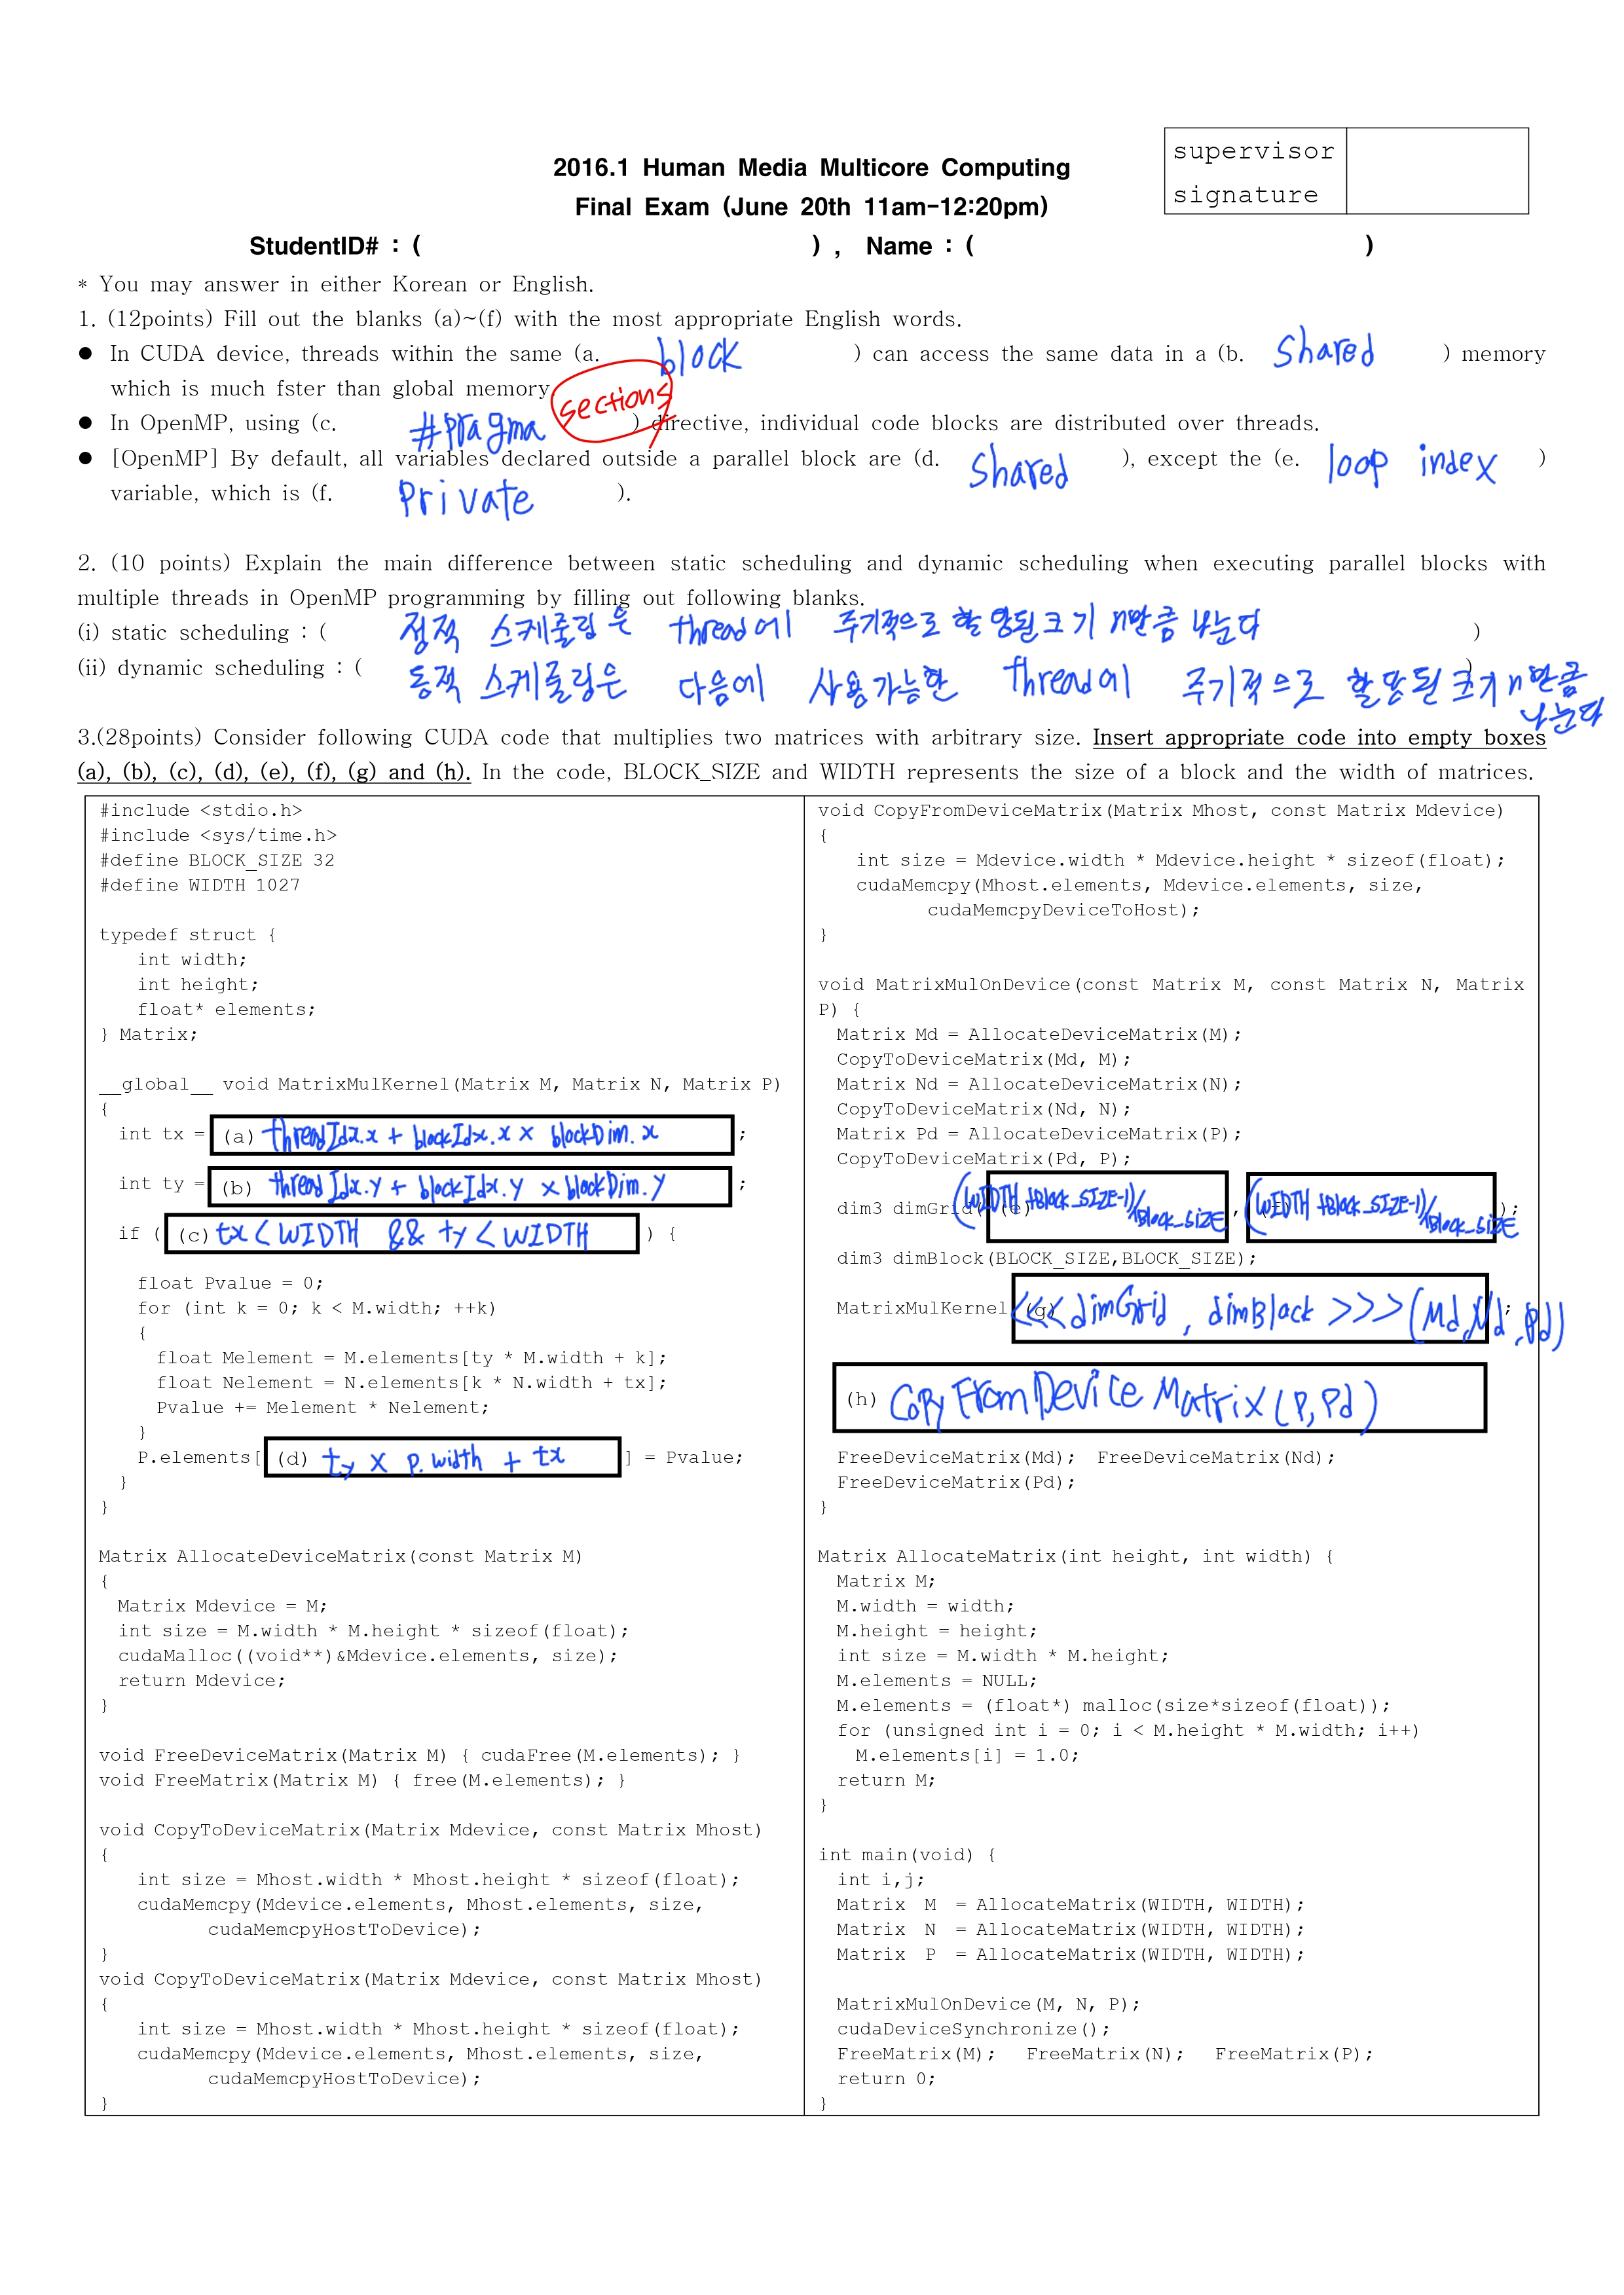 supervisor
signature
2016.1 Human Media Multicore Computing
Final Exam (June 20th 11am-12:20pm)
StudentID# : ( ) , Name : ( )
* You may answer in either Korean or English.
1. (12points) Fill out the blanks (a)~(f) with the most appropriate English words.
● In CUDA device, threads within the same (a. block ) can access the same data in a (b. shared ) memory
which is much fster than global memory
● In OpenMP, using (c. #pragma sections ) directive, individual code blocks are distributed over threads.
● [OpenMP] By default, all variables declared outside a parallel block are (d. shared ), except the (e. loop index )
variable, which is (f. private ).
2. (10 points) Explain the main difference between static scheduling and dynamic scheduling when executing parallel blocks with
multiple threads in OpenMP programming by filling out following blanks.
(i) static scheduling : ( 정적 스케줄링은 thread에 주기적으로 할당된 크기 n만큼 나눈다 )
(ii) dynamic scheduling : ( 동적 스케줄링은 다음에 사용가능한 thread에 주기적으로 할당된 크기 n만큼 나눈다 )
3.(28points) Consider following CUDA code that multiplies two matrices with arbitrary size. Insert appropriate code into empty boxes
(a), (b), (c), (d), (e), (f), (g) and (h). In the code, BLOCK_SIZE and WIDTH represents the size of a block and the width of matrices.
#include <stdio.h>
#include <sys/time.h>
#define BLOCK_SIZE 32
#define WIDTH 1027
typedef struct {
int width;
int height;
float* elements;
} Matrix;
__global__ void MatrixMulKernel(Matrix M, Matrix N, Matrix P)
{
int tx = (a) threadIdx.x + blockIdx.x × blockDim.x ;
int ty = (b) threadIdx.y + blockIdx.y × blockDim.y ;
if ( (c) tx < WIDTH && ty < WIDTH ) {
float Pvalue = 0;
for (int k = 0; k < M.width; ++k)
{
float Melement = M.elements[ty * M.width + k];
float Nelement = N.elements[k * N.width + tx];
Pvalue += Melement * Nelement;
}
P.elements[ (d) ty × p.width + tx ] = Pvalue;
}
}
Matrix AllocateDeviceMatrix(const Matrix M)
{
Matrix Mdevice = M;
int size = M.width * M.height * sizeof(float);
cudaMalloc((void**)&Mdevice.elements, size);
return Mdevice;
}
void FreeDeviceMatrix(Matrix M) { cudaFree(M.elements); }
void FreeMatrix(Matrix M) { free(M.elements); }
void CopyToDeviceMatrix(Matrix Mdevice, const Matrix Mhost)
{
int size = Mhost.width * Mhost.height * sizeof(float);
cudaMemcpy(Mdevice.elements, Mhost.elements, size,
cudaMemcpyHostToDevice);
}
void CopyToDeviceMatrix(Matrix Mdevice, const Matrix Mhost)
{
int size = Mhost.width * Mhost.height * sizeof(float);
cudaMemcpy(Mdevice.elements, Mhost.elements, size,
cudaMemcpyHostToDevice);
}
void CopyFromDeviceMatrix(Matrix Mhost, const Matrix Mdevice)
{
int size = Mdevice.width * Mdevice.height * sizeof(float);
cudaMemcpy(Mhost.elements, Mdevice.elements, size,
cudaMemcpyDeviceToHost);
}
void MatrixMulOnDevice(const Matrix M, const Matrix N, Matrix
P) {
Matrix Md = AllocateDeviceMatrix(M);
CopyToDeviceMatrix(Md, M);
Matrix Nd = AllocateDeviceMatrix(N);
CopyToDeviceMatrix(Nd, N);
Matrix Pd = AllocateDeviceMatrix(P);
CopyToDeviceMatrix(Pd, P);
dim3 dimGrid( (e) (WIDTH+Block_SIZE-1)/Block_SIZE , (WIDTH+Block_SIZE-1)/Block_SIZE );
dim3 dimBlock(BLOCK_SIZE,BLOCK_SIZE);
MatrixMulKernel (g) <<<dimGrid, dimBlack >>>(Md,Nd,Pd) ;
(h) CopyFromDeviceMatrix(P,Pd)
FreeDeviceMatrix(Md); FreeDeviceMatrix(Nd);
FreeDeviceMatrix(Pd);
}
Matrix AllocateMatrix(int height, int width) {
Matrix M;
M.width = width;
M.height = height;
int size = M.width * M.height;
M.elements = NULL;
M.elements = (float*) malloc(size*sizeof(float));
for (unsigned int i = 0; i < M.height * M.width; i++)
M.elements[i] = 1.0;
return M;
}
int main(void) {
int i,j;
Matrix M = AllocateMatrix(WIDTH, WIDTH);
Matrix N = AllocateMatrix(WIDTH, WIDTH);
Matrix P = AllocateMatrix(WIDTH, WIDTH);
MatrixMulOnDevice(M, N, P);
cudaDeviceSynchronize();
FreeMatrix(M); FreeMatrix(N); FreeMatrix(P);
return 0;
}